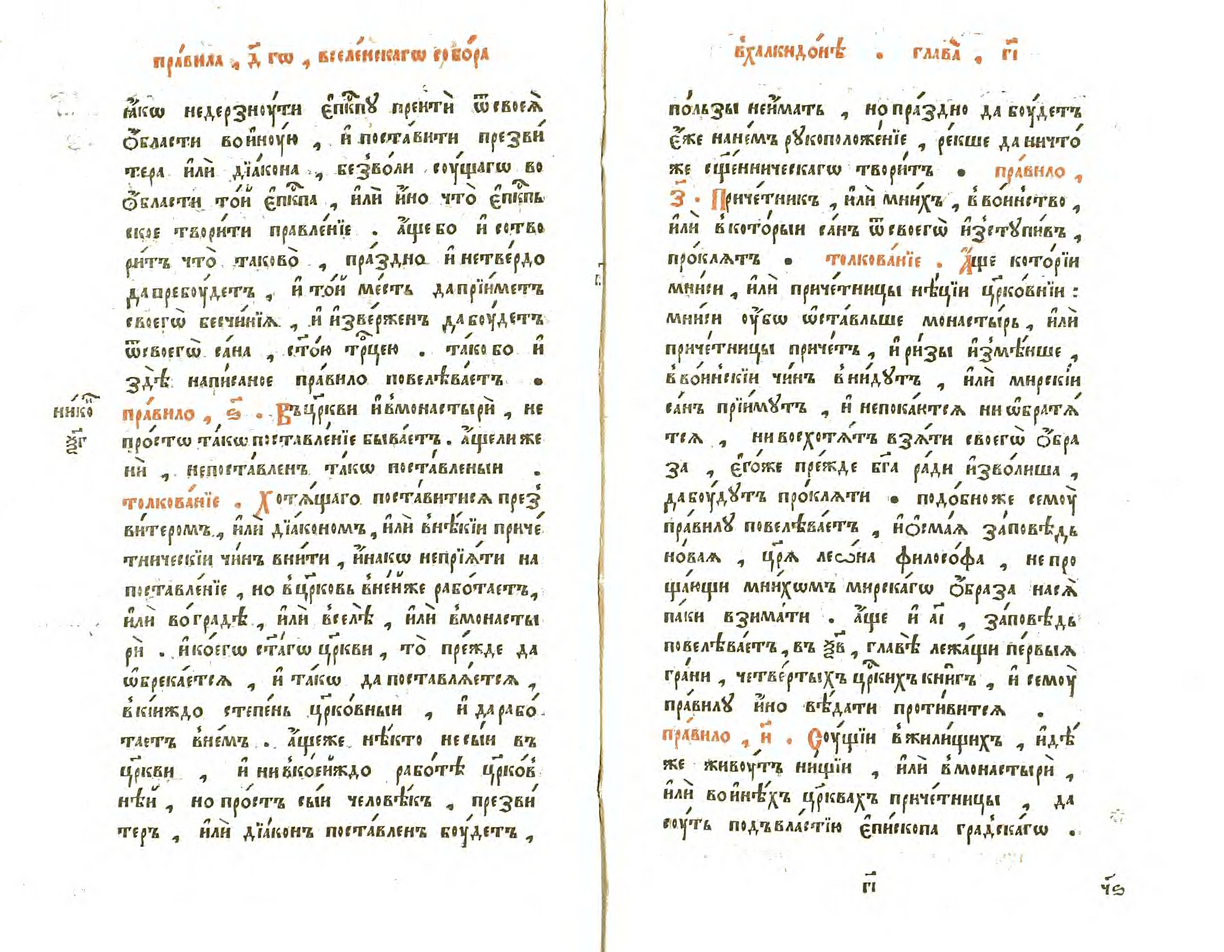 пра́вила , д҃ гѡ , вселе́нскагѡ собо́ра
ꙗ́кѡ недерзноу́ти є҆пⷭ҇кпꙋ преитѝ ѿсвоеѧ̀
ѻ҆́бласти вои҆ноу́ю , и҆ поста́вити презви́
тера и҆лѝ дїа́кона , безво́ли соу́щагѡ во
ѻ҆́бласти то́й є҆пⷭ҇кпа , и҆лѝ и҆́но что̀ є҆пⷭ҇кпь
ское твори́ти правле́нїе . а҆́ще бо и҆ сотво
ри́тъ что̀ таково̀ , пра́здно и҆ нетве́рдо
да пребоу́детъ , и҆ то́й ме́сть да прїи́метъ
своегѡ̀ бесчи́нїѧ , и҆ и҆зве́рженъ да боу́детъ
ѿсвоегѡ̀ са́на , ст҃о́ю трⷪ҇цею . та́ко бо и҆
здѣ̀ напи́саное пра́вило повелѣва́етъ .
нико
пра́вило , ѕ҃ . Въцр҃кви и҆ вмонастырѝ , не
ѯ҃г
про́стѡ та́кѡ поставле́нїе быва́етъ . а҆́щели же
нѝ , непоста́вленъ та́кѡ поста́вленыи .
толкова́нїе . Хотѧ́щаго поста́витисѧ през
ви́теромъ , и҆лѝ дїа́кономъ , и҆лѝ внѣ́кїи приче́
тническїи чи́нъ вни́ти , и҆́накѡ непрїѧ́ти на
поставле́нїе , но вцр҃ковь вне́йже рабо́таетъ ,
и҆лѝ во гра́дѣ , и҆лѝ вселѣ̀ , и҆лѝ вмонасты
рѝ . и҆ко́егѡ ст҃а́гѡ цр҃кви , то̀ пре́жде да
ѡ҆брека́етсѧ , и҆ та́кѡ да поставлѧ́етсѧ ,
вкі́иждо степе́нь цр҃ко́вныи , и҆ да рабо́
таетъ вне́мъ . а҆́щеже нѣ́кто не сы́и въ
цр҃кви , и҆ нивко́ейждо рабо́тѣ цр҃ко́в
нѣй , но про́стъ сы́и человѣ́къ , презви́
теръ , и҆лѝ дїа́конъ поста́вленъ боу́детъ ,
вхалкидо́нѣ . глава̀ , г҃і
по́льзы неи́мать , но пра́здно да боу́детъ
є҆́же нане́мъ рꙋкоположе́нїе , ре́кше да ничто́
же сщ҃е́нническагѡ твори́тъ . пра́вило ,
з҃ . Приче́тникъ , и҆лѝ мни́хъ , ввои́нство ,
и҆лѝ вкото́рыи са́нъ ѿсвоегѡ̀ и҆зстꙋпи́въ ,
про́клѧтъ . толкова́нїе . А҆́ще кото́рїи
мни́си , и҆лѝ приче́тницы нѣ́цїи цр҃ко́внїи :
мни́си оу҆́бѡ ѡ҆ста́вльше монасты́рь , и҆лѝ
приче́тницы приче́тъ , и҆ ри́зы и҆змѣ́нше ,
ввои́нскїи чи́нъ вни́дꙋтъ , и҆лѝ мирскі́и
са́нъ прїи́мꙋтъ , и҆ непока́ютсѧ ни ѡ҆братѧ́
тсѧ , ни восхотѧ́тъ взѧ́ти своегѡ̀ ѻ҆́бра
за , є҆го́же пре́жде бг҃а ра́ди и҆зво́лиша ,
да боу́дꙋтъ про́клѧти . подо́бноже семоу̀
пра́вилꙋ повелѣва́етъ , и҆ ѻ҆сма́ѧ за́повѣдь
но́ваѧ , цр҃ѧ̀ леѡ́на філосо́фа , не про
ща́ющи мни́хѡмъ мирска́гѡ ѻ҆́браза насѧ̀
па́ки взима́ти . а҆́ще и҆ а҃і , за́повѣдь
повелѣва́етъ , въ ѯ҃в , главѣ̀ лежа́щи пе́рвыѧ
гра́ни , четве́ртыхъ цр҃кихъ кни́гъ , и҆ семоу̀
пра́вилꙋ и҆́но вѣ́дати проти́витсѧ .
пра́вило , и҃ . Соу́щїи вжили́щихъ , и҆дѣ́
же живоу́тъ ни́щїи , и҆лѝ вмонастырѝ ,
и҆лѝ вои҆нѣ́хъ цр҃квахъ приче́тницы , да
соу́ть подъвла́стїю є҆пи́скопа гра́дскагѡ .
г҃і
ч҃ѕ